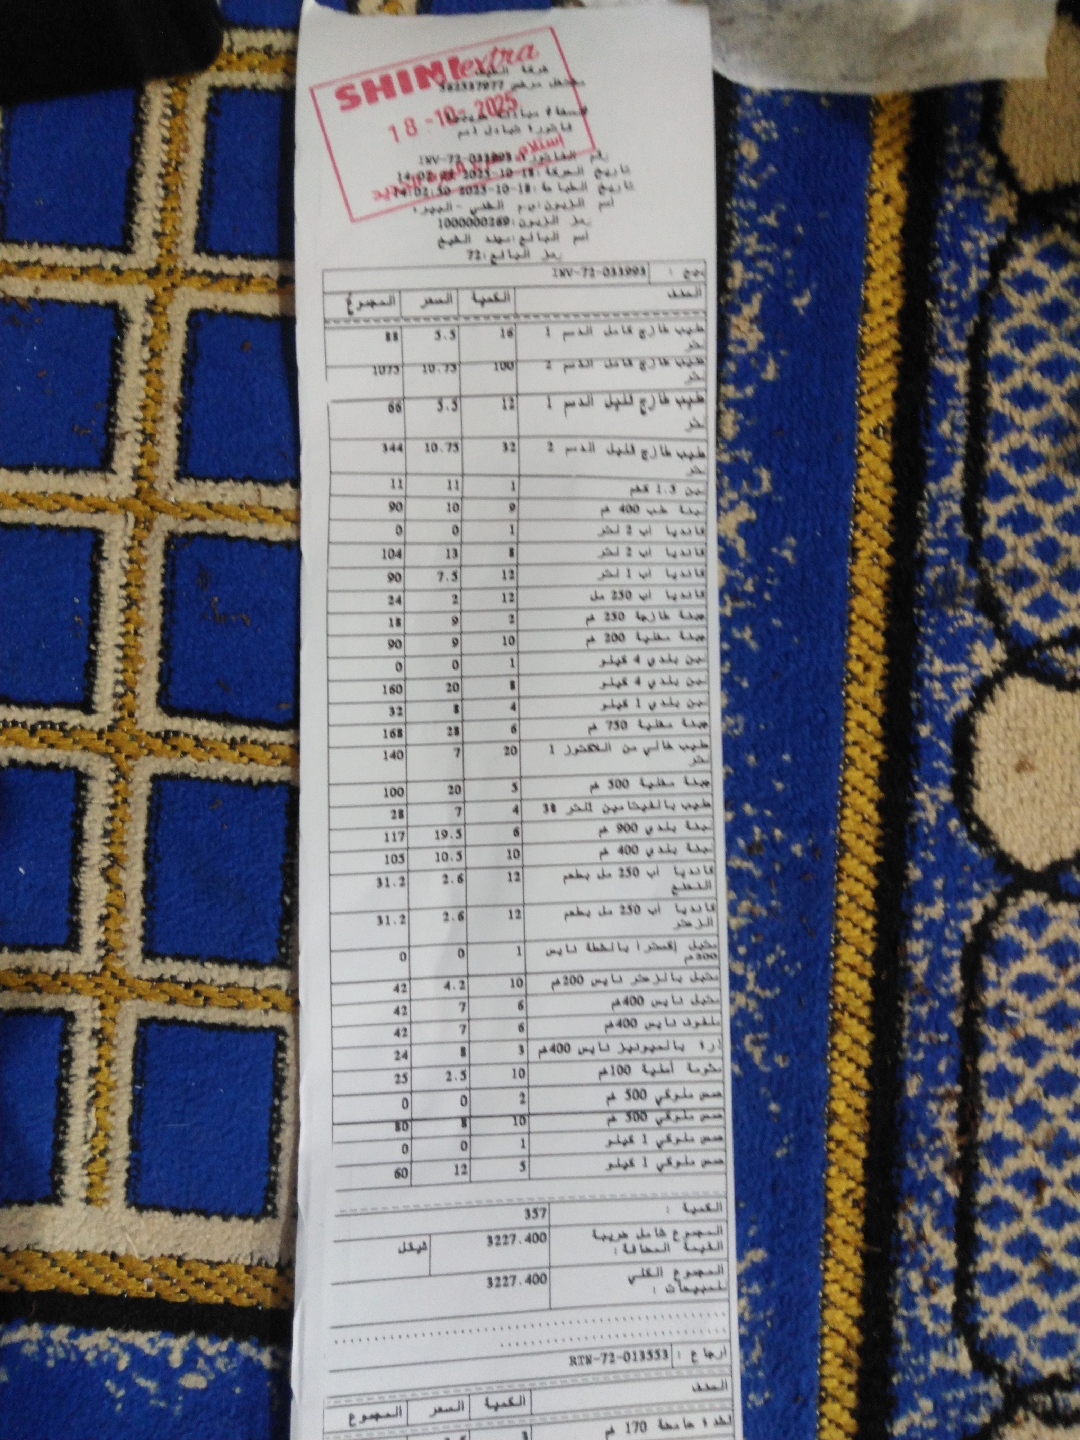 SHIMI extra
شركة الطيف
مشتغل مرخص 562537977
18-10-2025
فاتورة تبادل اسم
رقم الفاتورة: INV-72-033993
تاريخ الحركة: 18-10-2025
تاريخ الطباعة: 18-10-2025 14:02:50
رمز الزبون: 1000000269
رمز البائع: 72
بيع : INV-72-033993
الصنف الكمية السعر المجموع
حليب طازج كامل الدسم 1 لتر 16 5.5 88
حليب طازج كامل الدسم 2 لتر 100 10.75 1075
حليب طازج قليل الدسم 1 لتر 12 5.5 66
حليب طازج قليل الدسم 2 لتر 32 10.75 344
لبن 1.5 كغم 1 11 11
لبنة علب 400 غم 9 10 90
كانديا اب 2 لتر 1 0 0
كانديا اب 2 لتر 8 13 104
كانديا اب 1 لتر 12 7.5 90
كانديا اب 250 مل 12 2 24
جبنة طازجة 250 غم 2 9 18
جبنة مغلية 200 غم 10 9 90
لبن بلدي 4 كيلو 1 0 0
لبن بلدي 4 كيلو 8 20 160
لبن بلدي 1 كيلو 4 8 32
جبنة مغلية 750 غم 6 28 168
حليب خالي من اللاكتوز 1 لتر 20 7 140
جبنة مغلية 500 غم 5 20 100
حليب بالفيتامين 1لتر 38 4 7 28
لبنة بلدي 900 غم 6 19.5 117
لبنة بلدي 400 غم 10 10.5 105
كانديا اب 250 مل بطعم 12 2.6 31.2
كانديا اب 250 مل بطعم 12 2.6 31.2
متبل إكسترا بالشطة نايس 1 0 0
متبل بالزعتر نايس 200غم 10 4.2 42
متبل نايس 400غم 6 7 42
ملفوف نايس 400غم 6 7 42
ذرة بالميونيز نايس 400غم 3 8 24
مثومة أصلية 100غم 10 2.5 25
حمص ملوكي 500 غم 2 0 0
حمص ملوكي 500 غم 10 8 80
حمص ملوكي 1 كيلو 1 0 0
حمص ملوكي 1 كيلو 5 12 60
الكمية : 357
المجموع شامل ضريبة القيمة المضافة : 3227.400 شيكل
المجموع الكلي للمبيعات : 3227.400
ارجاع : RTN-72-013553
الصنف الكمية السعر المجموع
170 غم 3